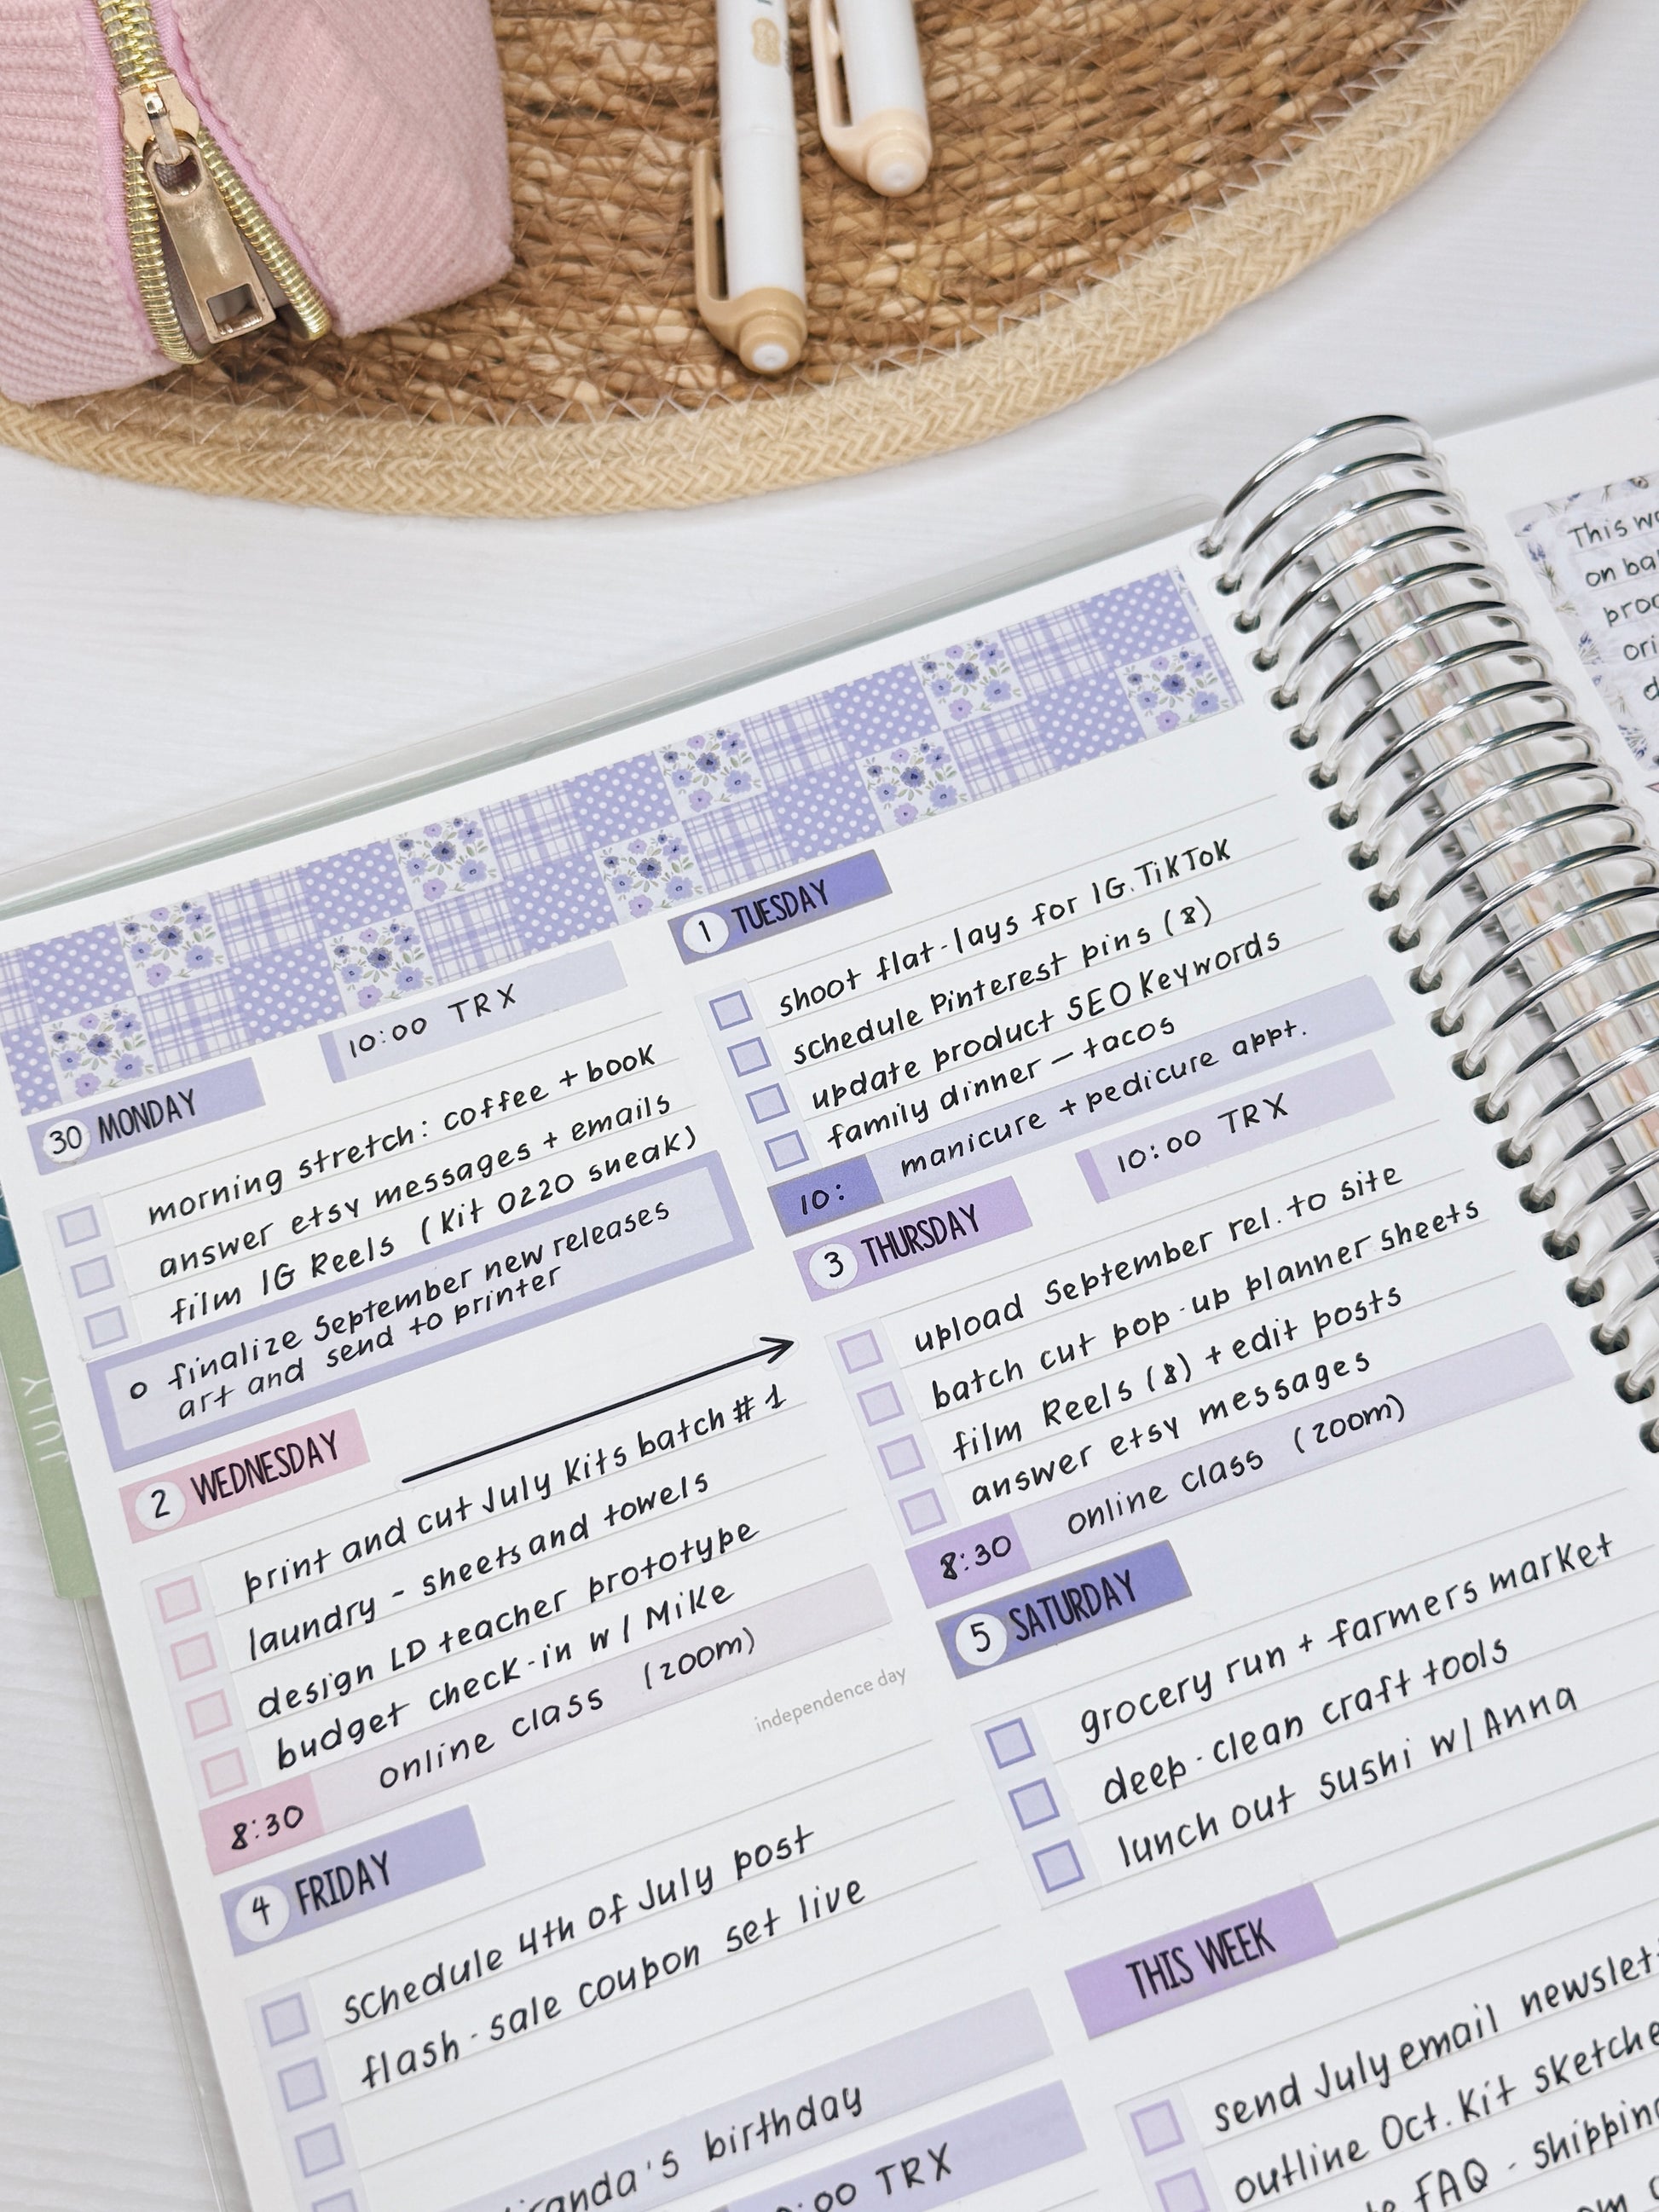 10:00 TRX
30 MONDAY
morning stretch: coffee + book
answer etsy messages + emails
film IG Reels (Kit 0220 sneak)
o finalize September new releases
art and send to printer
1 TUESDAY
shoot flat-lays for IG. TikTok
schedule Pinterest pins (8)
update product SEO Keywords
family dinner — tacos
10: manicure + pedicure appt.
2 WEDNESDAY
print and cut July Kits batch #1
laundry - sheets and towels
design LD teacher prototype
budget check-in w/ Mike
8:30 online class (zoom)
10:00 TRX
3 THURSDAY
upload September rel. to site
batch cut pop-up planner sheets
film Reels (8) + edit posts
answer etsy messages
8:30 online class (zoom)
independence day
4 FRIDAY
schedule 4th of July post
flash-sale coupon set live
birthday
TRX
5 SATURDAY
grocery run + farmers market
deep-clean craft tools
lunch out sushi w/ Anna
THIS WEEK
send July email
outline Oct. Kit
FAQ -
JULY
This
on